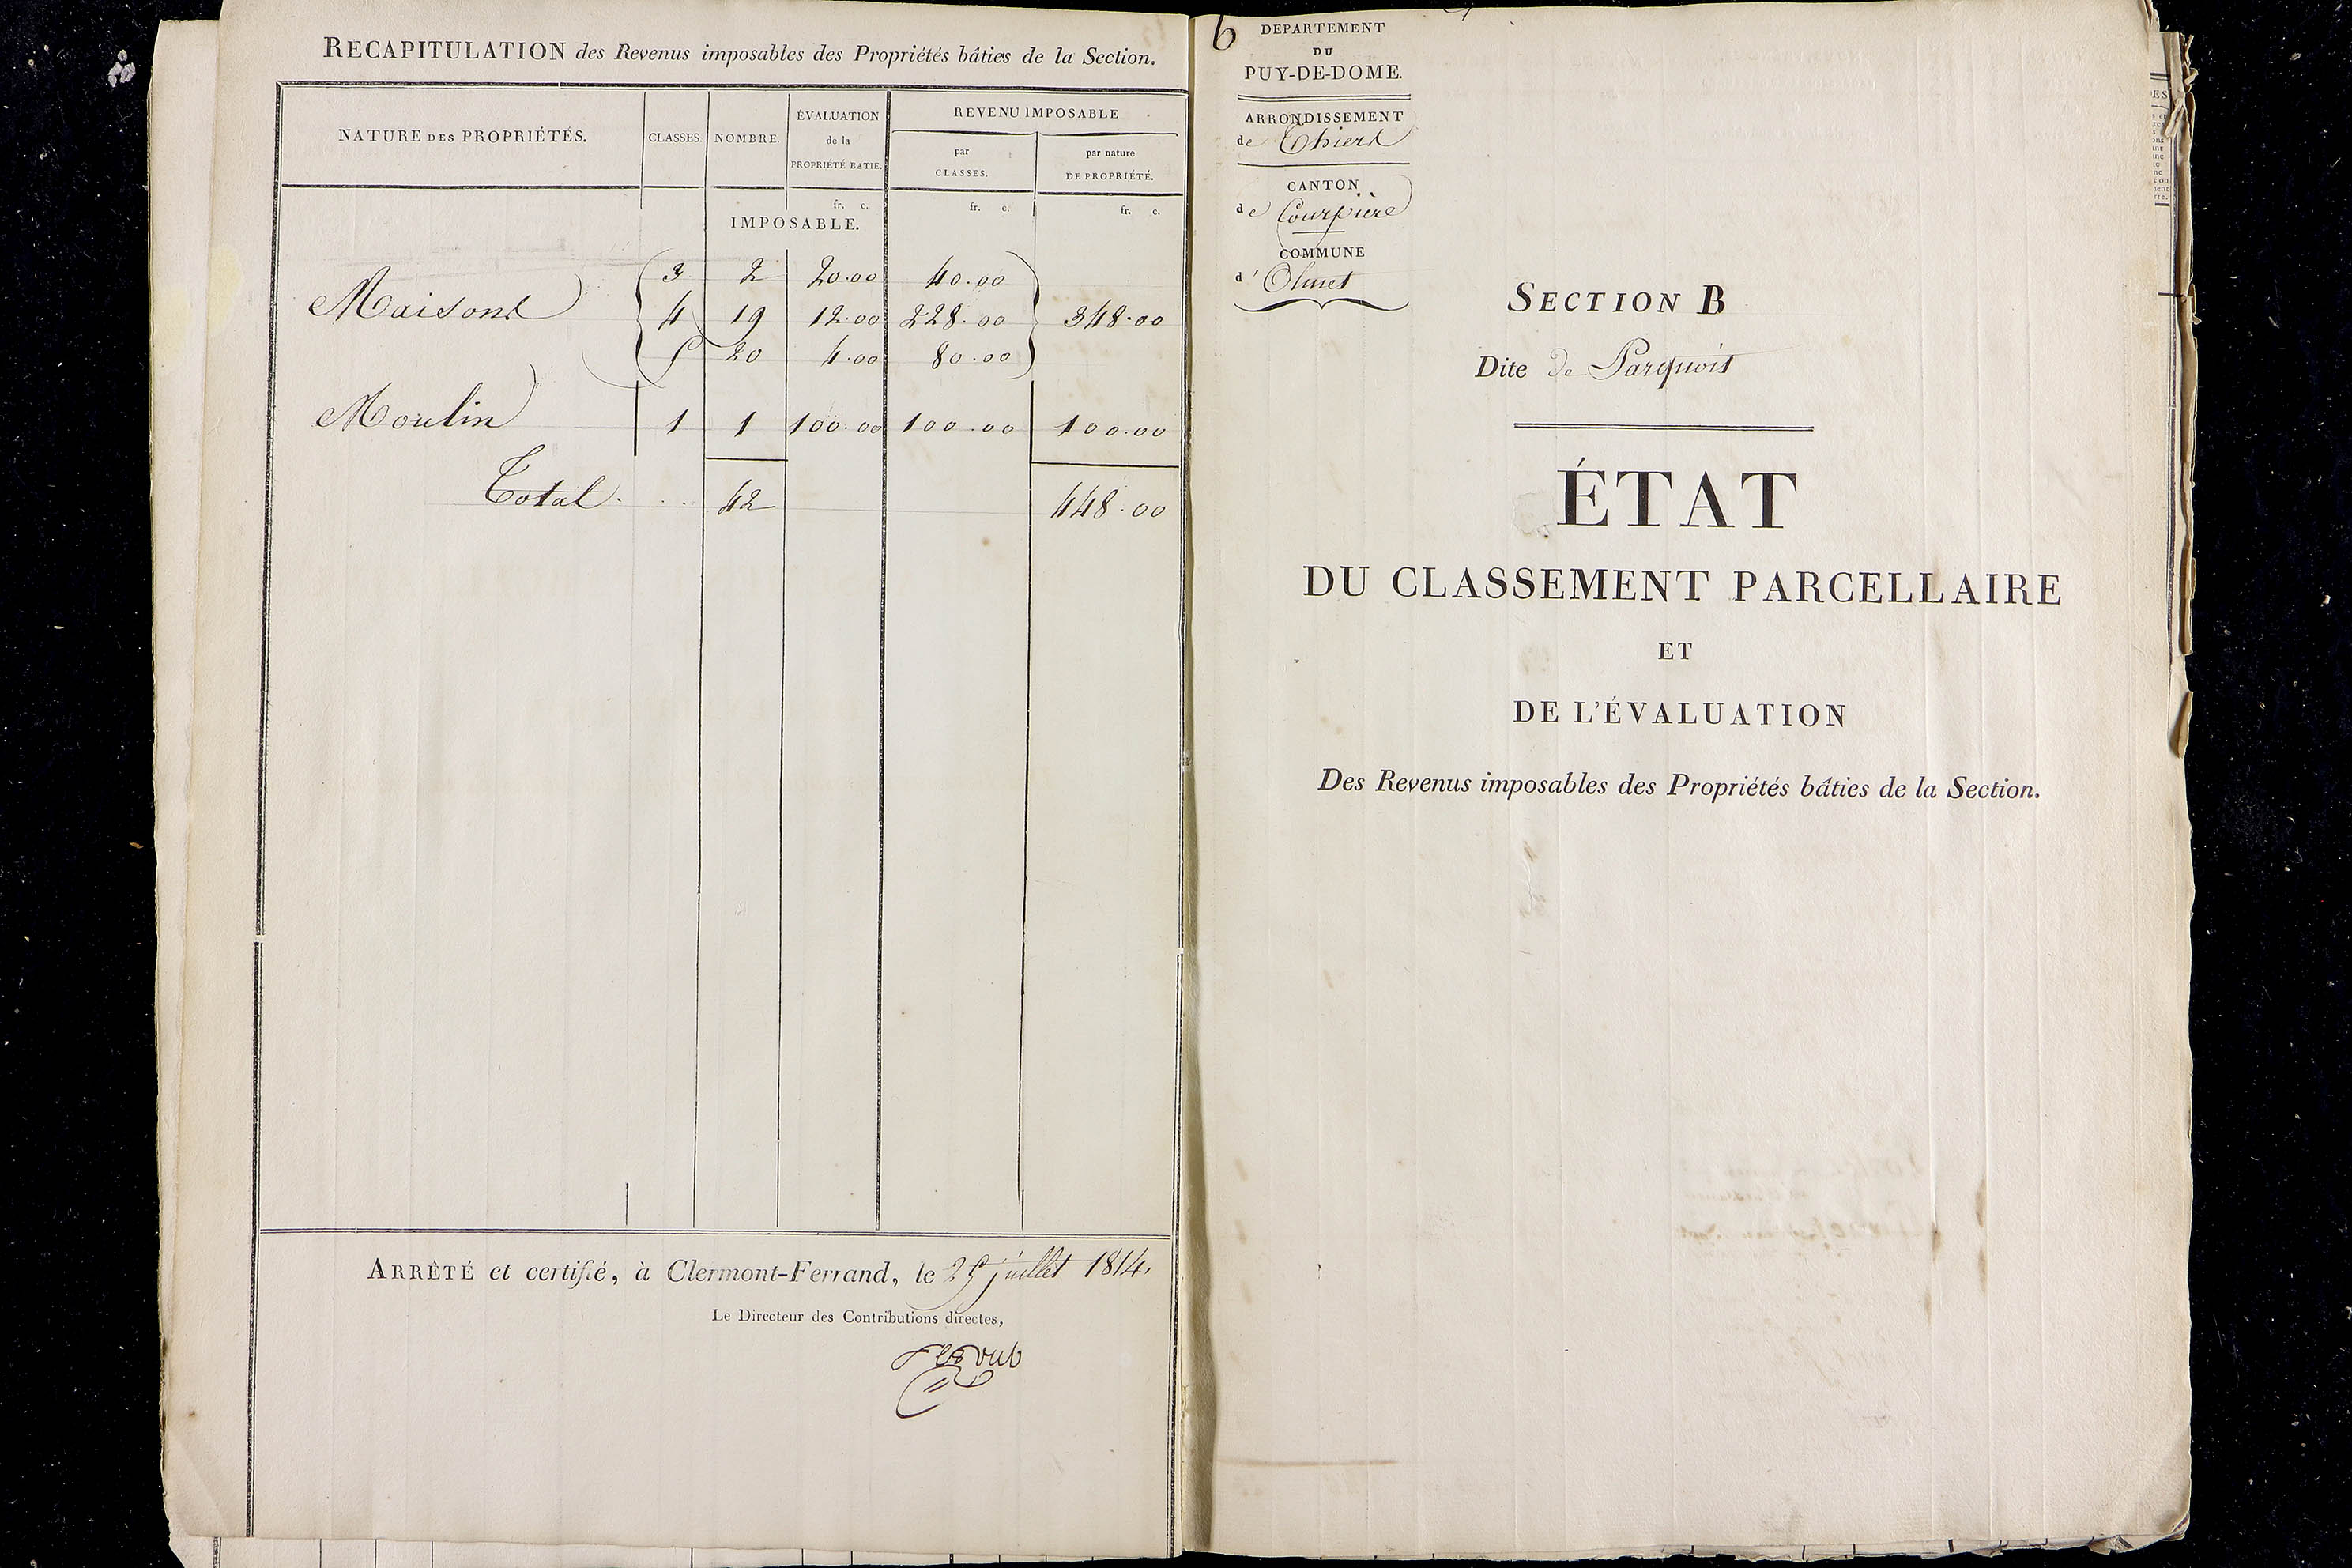 RÉCAPITULATION des Revenus imposables des Propriétés bâties de la Section.
NATURE DES PROPRIÉTÉS. CLASSES. NOMBRE. ÉVALUATION de la PROPRIÉTÉ BATIE. REVENU IMPOSABLE
par CLASSES. par nature DE PROPRIÉTÉ.
fr. c. fr. c. fr. c.
IMPOSABLE.
3 2 20.00 40.00
Maisons 4 19 12.00 228.00 348.00
5 20 4.00 80.00
Moulin 1 1 100.00 100.00 100.00
Total. . . 42 448.00
ARRÊTÉ et certifié, à Clermont-Ferrand, le 25 juillet 1814.
Le Directeur des Contributions directes,
6
DEPARTEMENT
DU
PUY-DE-DOME.
ARRONDISSEMENT
de Thiers
CANTON
de Courpière
COMMUNE
d'Olmet
SECTION B
Dite de Parquois
ÉTAT
DU CLASSEMENT PARCELLAIRE
ET
DE L'ÉVALUATION
Des Revenus imposables des Propriétés bâties de la Section.